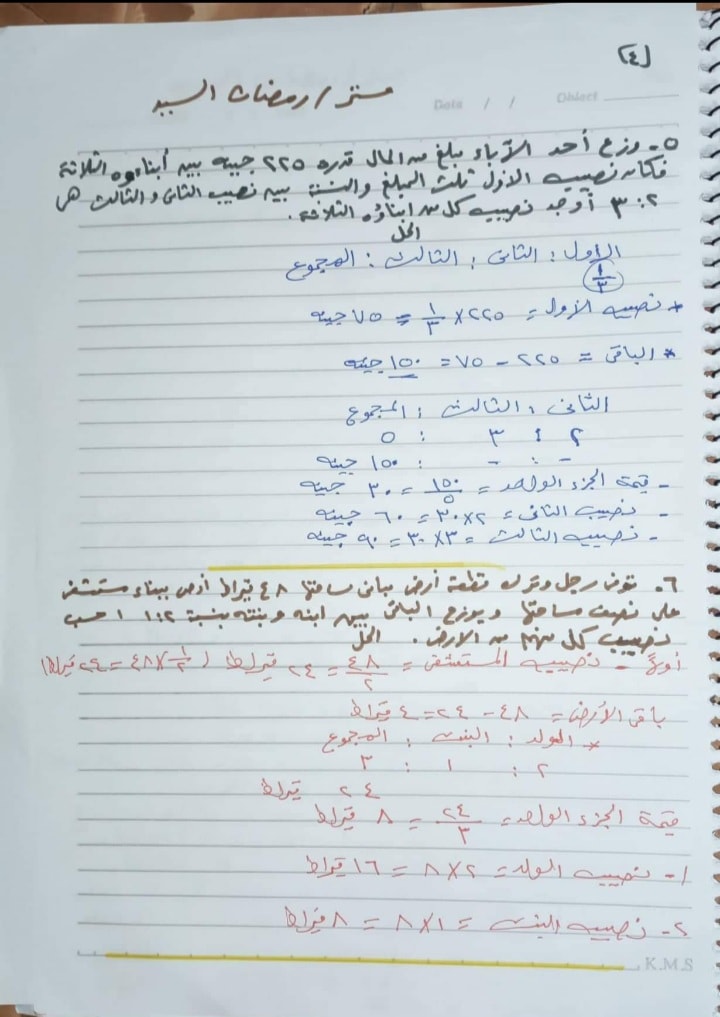 (٤)
مستر / رمضان السيد
Date / / Object
٥- وزع أحد الآباء مبلغ من المال قدره ٢٢٥ جنيه بين أبناءه الثلاثة
فكان نصيب الأول ثلث المبلغ والنسبة بين نصيب الثاني والثالث هي
٢ : ٣ أوجد نصيب كل من ابناؤه الثلاثة.
الحل
الأول : الثاني : الثالث : المجموع
١/٣
* نصيب الأول = ٢٢٥ × ١/٣ = ٧٥ جنيه
* الباقي = ٢٢٥ - ٧٥ = ١٥٠ جنيه
الثاني : الثالث : المجموع
٢ : ٣ : ٥
- : - : ١٥٠ جنيه
- قيمة الجزء الواحد = ١٥٠/٥ = ٣٠ جنيه
- نصيب الثاني = ٢ × ٣٠ = ٦٠ جنيه
- نصيب الثالث = ٣ × ٣٠ = ٩٠ جنيه
٦- توفى رجل وترك قطعة أرض مباني مساحتها ٤٨ قيراط أوصى ببناء مستشفى
على نصف مساحتها ويوزع الباقي بين ابنه وبنته بنسبة ٢ : ١ احسب
نصيب كل منهم من الأرض. الحل
أولاً - نصيب المستشفى = ٤٨/٢ = ٢٤ قيراط (١/٢ × ٤٨ = ٢٤ قيراط)
باقي الأرض = ٤٨ - ٢٤ = ٢٤ قيراط
* الولد : البنت : المجموع
٢ : ١ : ٣
٢٤ قيراط
قيمة الجزء الواحد = ٢٤/٣ = ٨ قيراط
١- نصيب الولد = ٢ × ٨ = ١٦ قيراط
٢- نصيب البنت = ١ × ٨ = ٨ قيراط
K.M.S